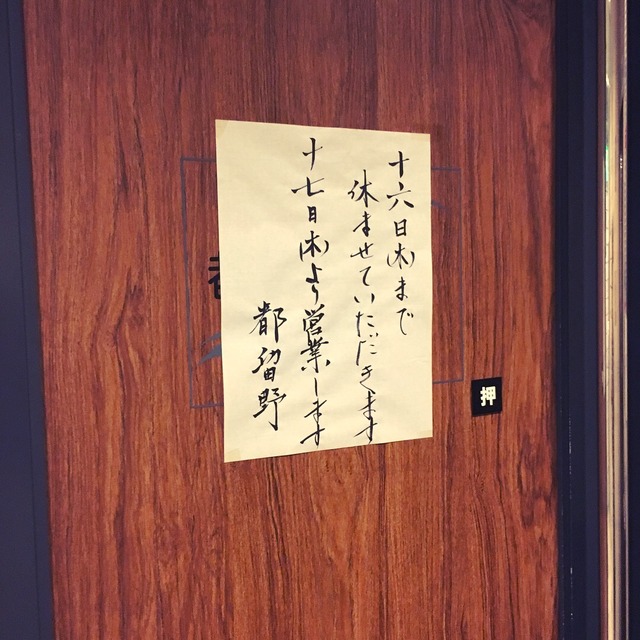 十六日(水)まで
休ませていただきます
十七日(木)より営業します
都留野
押